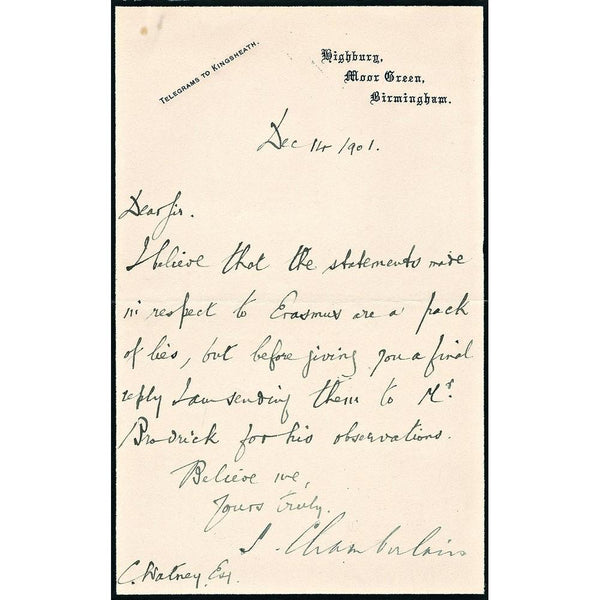 TELEGRAMS TO KINGSHEATH.
Highbury,
Moor Green,
Birmingham.
Dec 14 1901.
Dear Sir.
I believe that the statements made
in respect to Erasmus are a pack
of lies, but before giving you a final
reply I am sending them to Mr.
Brodrick for his observations.
Believe me,
Yours truly.
J. Chamberlain
C. Watney Esq.